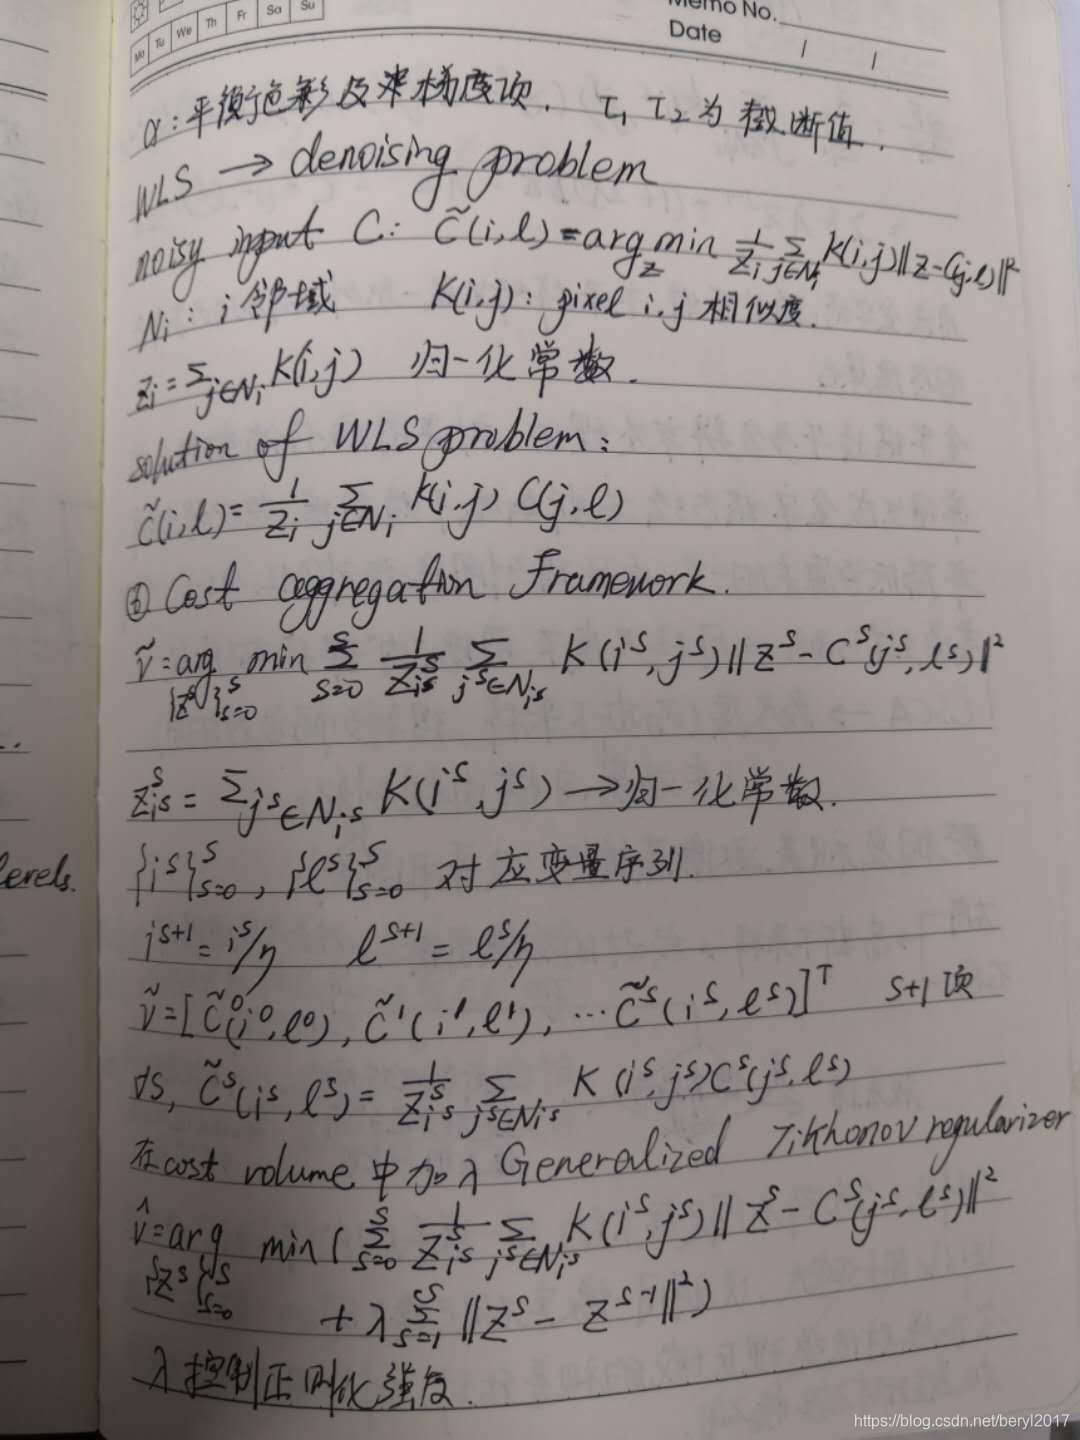 Mo Tu We Th Fr Sa Su
Memo No.
Date / /
α:平衡色彩及梯度项. τ₁ τ₂为截断值.
WLS → denoising problem
noisy input C: C̃(i,l)=arg min_z 1/Z_i Σ_{j∈N_i} K(i,j)||z-C(j,l)||²
N_i: i邻域 K(i,j): pixel i,j 相似度.
Z_i=Σ_{j∈N_i} K(i,j) 归一化常数.
solution of WLS problem:
C̃(i,l)= 1/Z_i Σ_{j∈N_i} K(i,j) C(j,l)
Cost aggregation Framework.
ṽ=arg min_{{z^s}^S_{s=0}} Σ^S_{s=0} 1/Z^s_{i^s} Σ_{j^s∈N_{i^s}} K(i^s,j^s)||z^s-C^s(j^s,l^s)||²
Z^s_{i^s}=Σ_{j^s∈N_{i^s}} K(i^s,j^s) →归一化常数.
{i^s}^S_{s=0}, {l^s}^S_{s=0} 对应变量序列.
i^{s+1}=i^s/η l^{s+1}=l^s/η
ṽ=[C̃⁰(i⁰,l⁰), C̃¹(i¹,l¹), ...C̃^S(i^S,l^S)]^T S+1项
∀s, C̃^s(i^s,l^s)= 1/Z^s_{i^s} Σ_{j^s∈N_{i^s}} K(i^s,j^s)C^s(j^s,l^s)
在cost volume中加入 Generalized Tikhonov regularizer
v̂=arg min_{{z^s}^S_{s=0}} (Σ^S_{s=0} 1/Z^s_{i^s} Σ_{j^s∈N_{i^s}} K(i^s,j^s)||z^s-C^s(j^s,l^s)||²
+λΣ^S_{s=1} ||z^s-z^{s-1}||²)
λ控制正则化强度.
levels.
https://blog.csdn.net/beryl2017